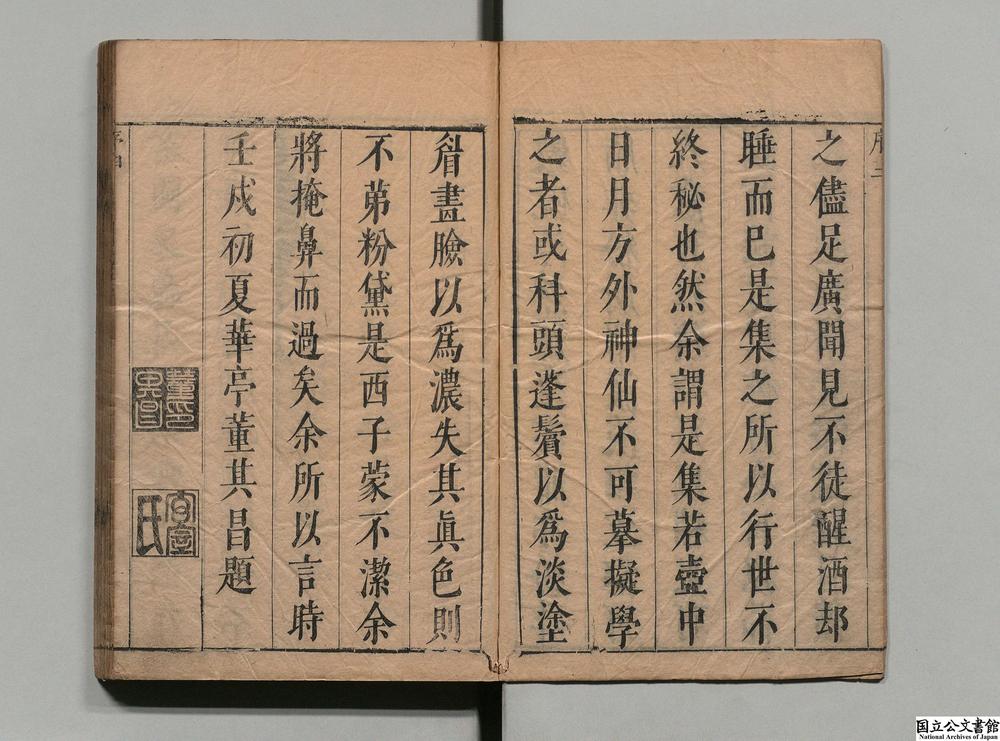 之儘足廣聞見不徒醒酒却
睡而巳是集之所以行世不
終秘也然余謂是集若壼中
日月方外神仙不可摹擬學
之者或科頭蓬鬢以爲淡塗
眉畫臉以爲濃失其眞色則
不苐粉黛是西子蒙不潔余
將掩鼻而過矣余所以言時
壬戍初夏華亭董其昌題
董其昌印
氏
国立公文書館
National Archives of Japan